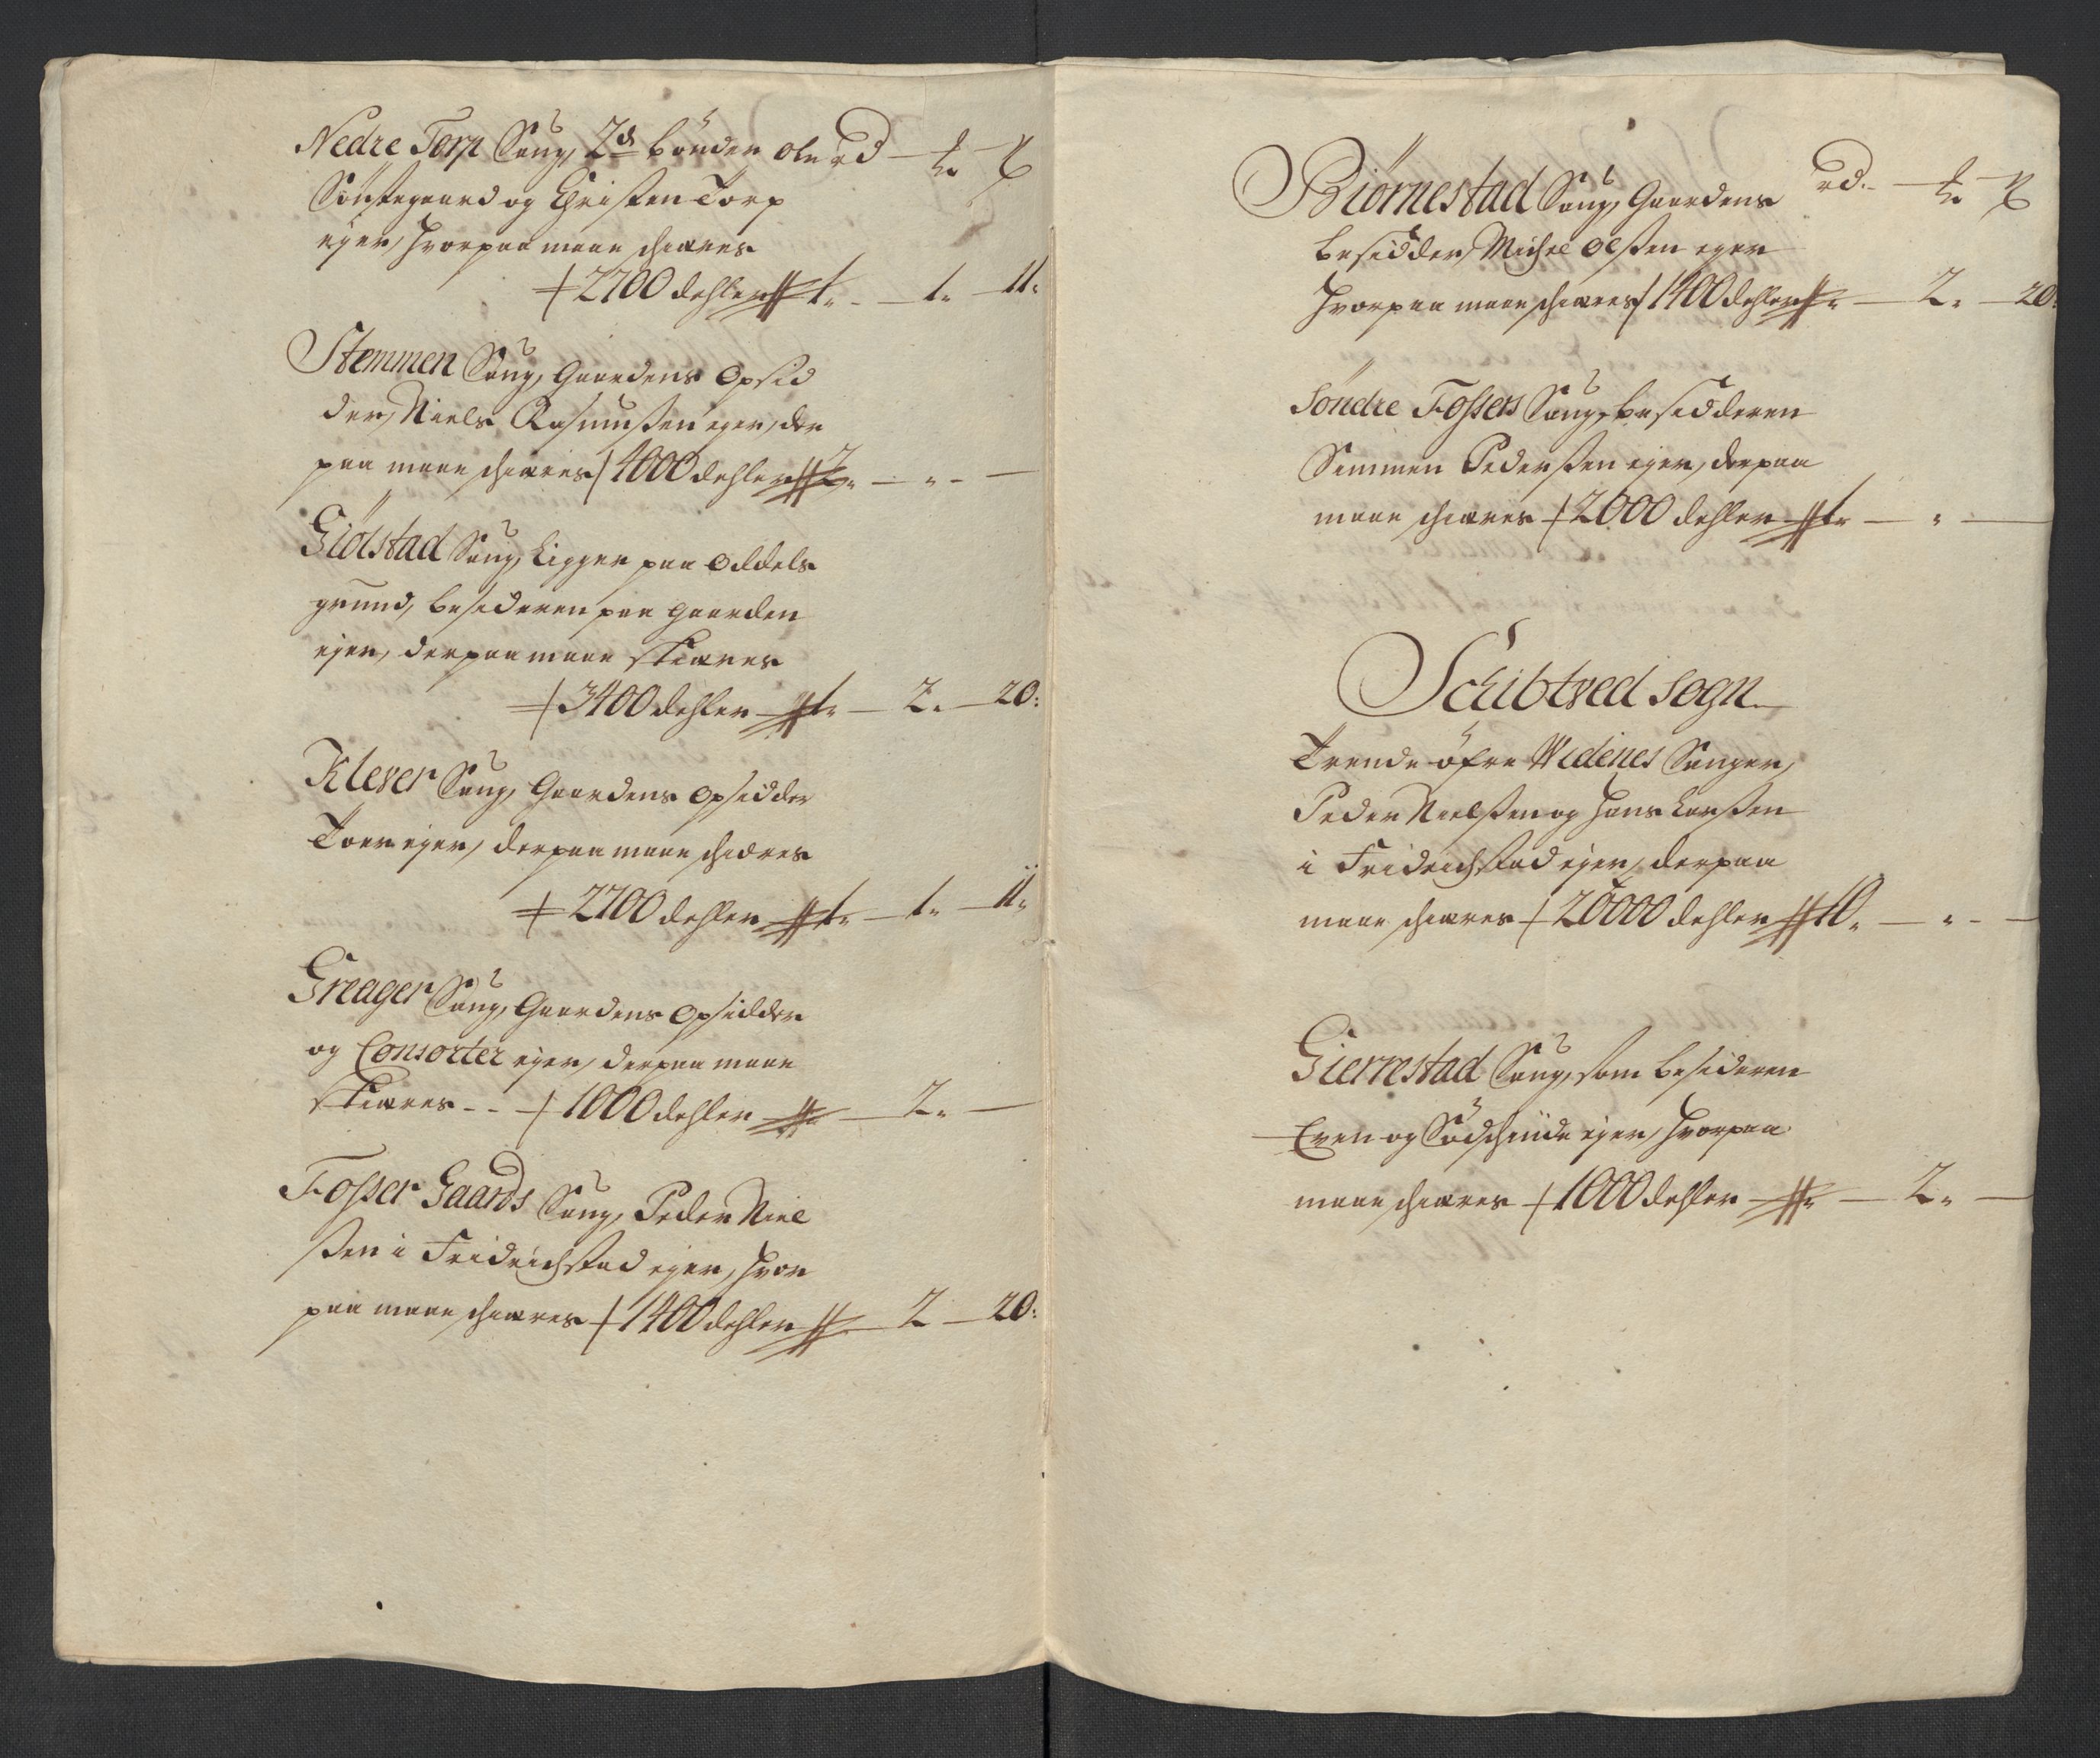 Nedre Torp Saug, 2de bønder Ole rd — ort ß
Sønstegaard og Christen Torp
ejer, hvorpaa maae schiæres
2700 dehler 1 „ — 1 „ — 11 „
Stemmen Saug, Gaardens Opsid
der, Niels Rasmussen ejer, der
paa maae schiæres 4000 dehler 2 „ — „ —
Giölstad Saug, Ligger paa Oddels
grund, besidderen paa gaarden
ejer, derpaa maae skiæres
3400 dehler 1 „ — 2 „ — 20:
Klever Saug, Gaardens Opsidder
Toer ejer, derpaa maae schiæres
2700 dehler 1 „ — 1 „ — 11 „
Greager Saug, Gaardens Opsidder
og Consorter ejer, derpaa maae
skiæres - - 1000 dehler — 2 „ —
Fosser Gaards Saug, Peder Niel
sen i Friderichstad ejer, hvor
paa maae schiæres 1400 dehler — 2 — 20:
Biörnestad Saug, Gaardens rd. — ort ß
besidder Michel Olsen ejer
hvorpaa maae schiæres 1400 dehler — 2 „ — 20:
Söndre Fossers Saug, besidderen
Simmen Pedersen ejer, derpaa
maae schiæres 2000 dehler 1 „ — „ —
Schibtved Sogn
Trende öfre Widenes Sauger,
Peder Nielsen og Hans Larsen
i Friderichstad ejer, derpaa
maae schiæres 20000 dehler 10 „ — „ —
Giernestad Saug, som besidderen
Even og ejer, hvorpaa
maae schiæres 1000 dehler — 2 „ —